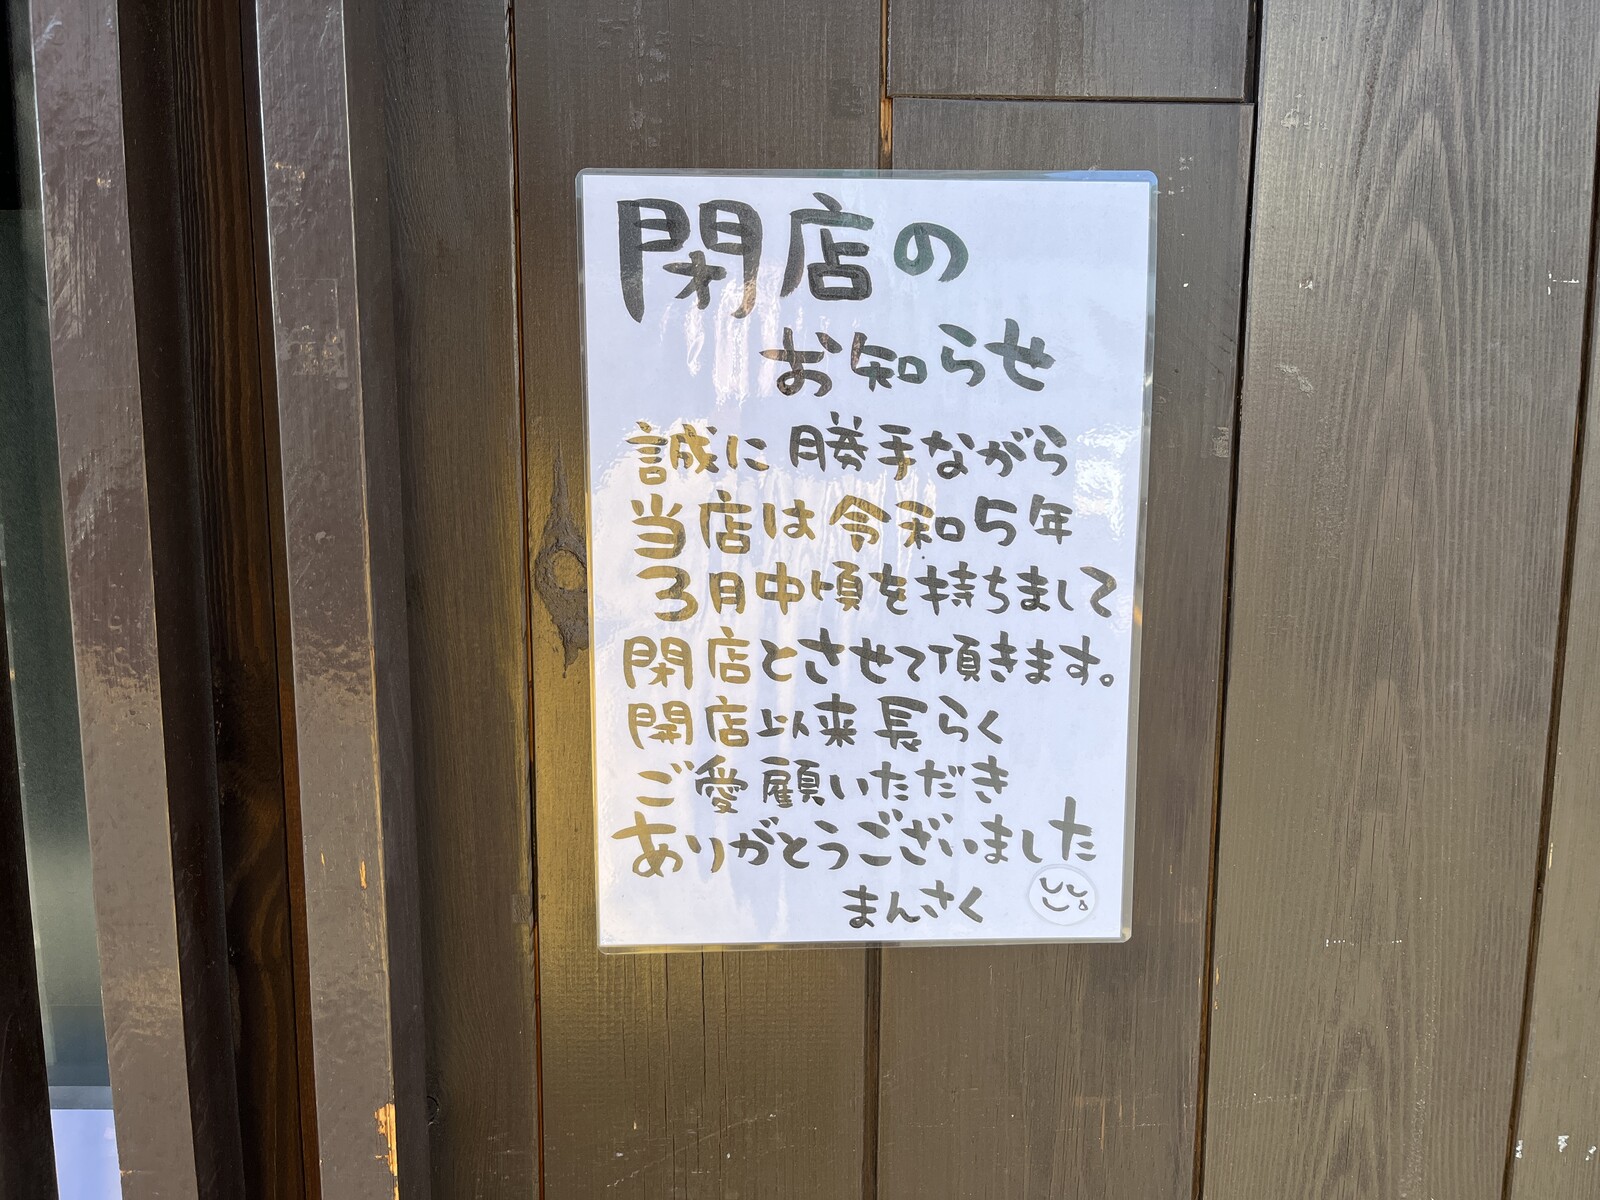 閉店の
お知らせ
誠に勝手ながら
当店は令和5年
3月中頃を持ちまして
閉店とさせて頂きます。
開店以来長らく
ご愛顧いただき
ありがとうございました
まんさく